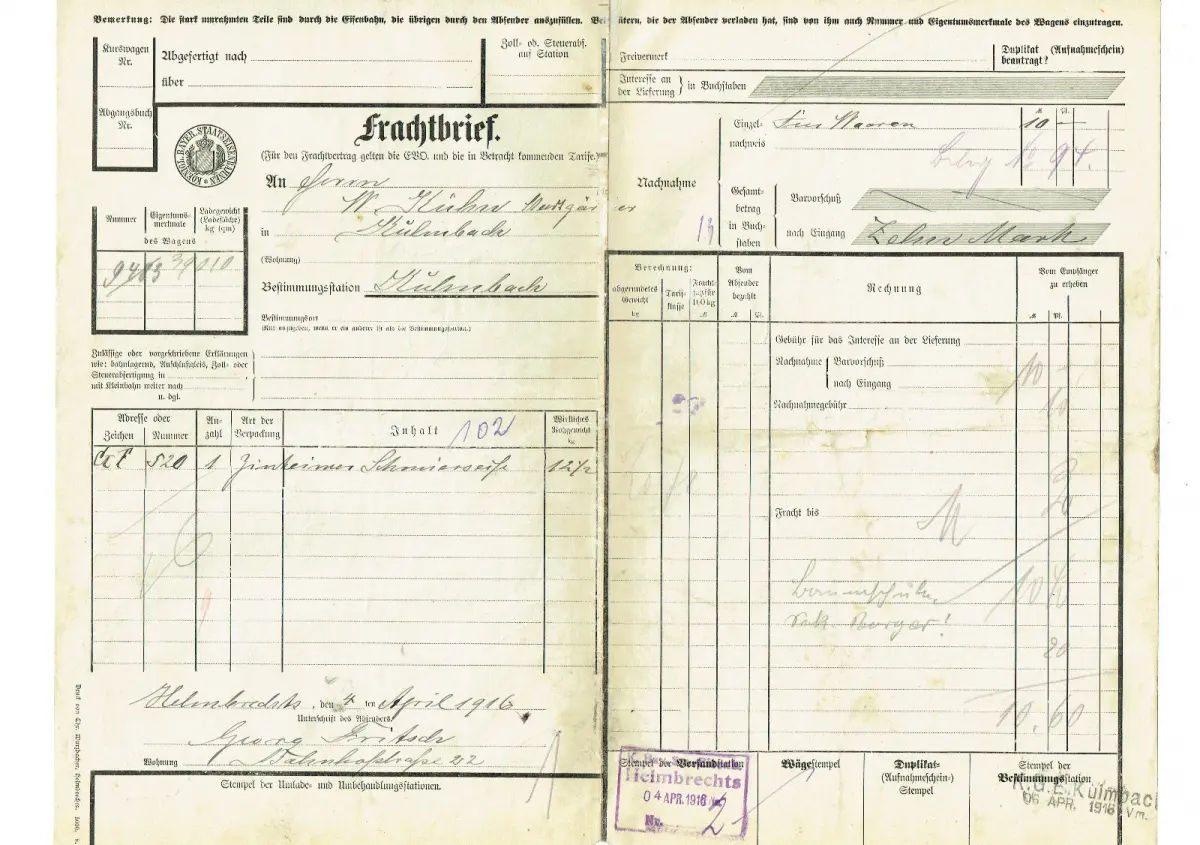 Bemerkung: Die stark umrahmten Teile sind durch die Eisenbahn, die übrigen durch den Absender auszufüllen. Bei Gütern, die der Absender verladen hat, sind von ihm auch Nummer und Eigentumsmerkmale des Wagens einzutragen.
Kurswagen
Nr.
Abgefertigt nach
über
Zoll- od. Steuerabf.
auf Station
Abgangsbuch
Nr.
KOENIGL. BAYER. STAATSEISENBAHNEN
Frachtbrief.
(Für den Frachtvertrag gelten die EVO. und die in Betracht kommenden Tarife.)
An Herrn
W. Kühn
in Kulmbach
(Wohnung)
Bestimmungsstation Kulmbach
Bestimmungsort
(Nur anzugeben, wenn er ein anderer ist als die Bestimmungsstation.)
Nummer
Eigentums-
merkmale
Ladegewicht
(Ladefläche)
kg (qm)
des Wagens
Zulässige oder vorgeschriebene Erklärungen
wie: bahnlagernd, Anschlußgleis, Zoll- oder
Steuerabfertigung in
mit Kleinbahn weiter nach
u. dgl.
Adresse oder
Zeichen Nummer
An-
zahl
Art der
Verpackung
Inhalt 102
Wirkliches
Rohgewicht
kg
520 1 Schmierseife 12½
Helmbrechts, den 4 ten April 1916
Unterschrift des Absenders
Georg Fritsch
Wohnung Bahnhofstraße 22
Stempel der Umlade- und Umbehandlungsstationen.
Druck von Chr. Münzbacher, Helmbrechts.
Freivermerk
Duplikat (Aufnahmeschein)
beantragt?
Interesse an
der Lieferung
in Buchstaben
Nachnahme
Einzel-
nachweis
Für Waaren
ℳ Pf.
10 —
No 94.
Gesamt-
betrag
in Buch-
staben
13
Barvorschuß
nach Eingang Zehn Mark
Berechnung:
abgerundetes
Gewicht
kg
Tarif-
klasse
Frachtsatz für
100 kg
ℳ
Vom
Absender
bezahlt
ℳ Pf.
Rechnung
Vom Empfänger
zu erheben
ℳ Pf.
Gebühr für das Interesse an der Lieferung
Nachnahme
Barvorschuß
nach Eingang 10 —
Nachnahmegebühr 10
Fracht bis
Baumschule
20
10.60
Stempel der Versandstation
Helmbrechts
04 APR. 1916
Nr. 2
Wägestempel
Duplikat-
(Aufnahmeschein-)
Stempel
Stempel der
Bestimmungsstation
K.G.E. Kulmbach
06 APR. 1916 Vm.